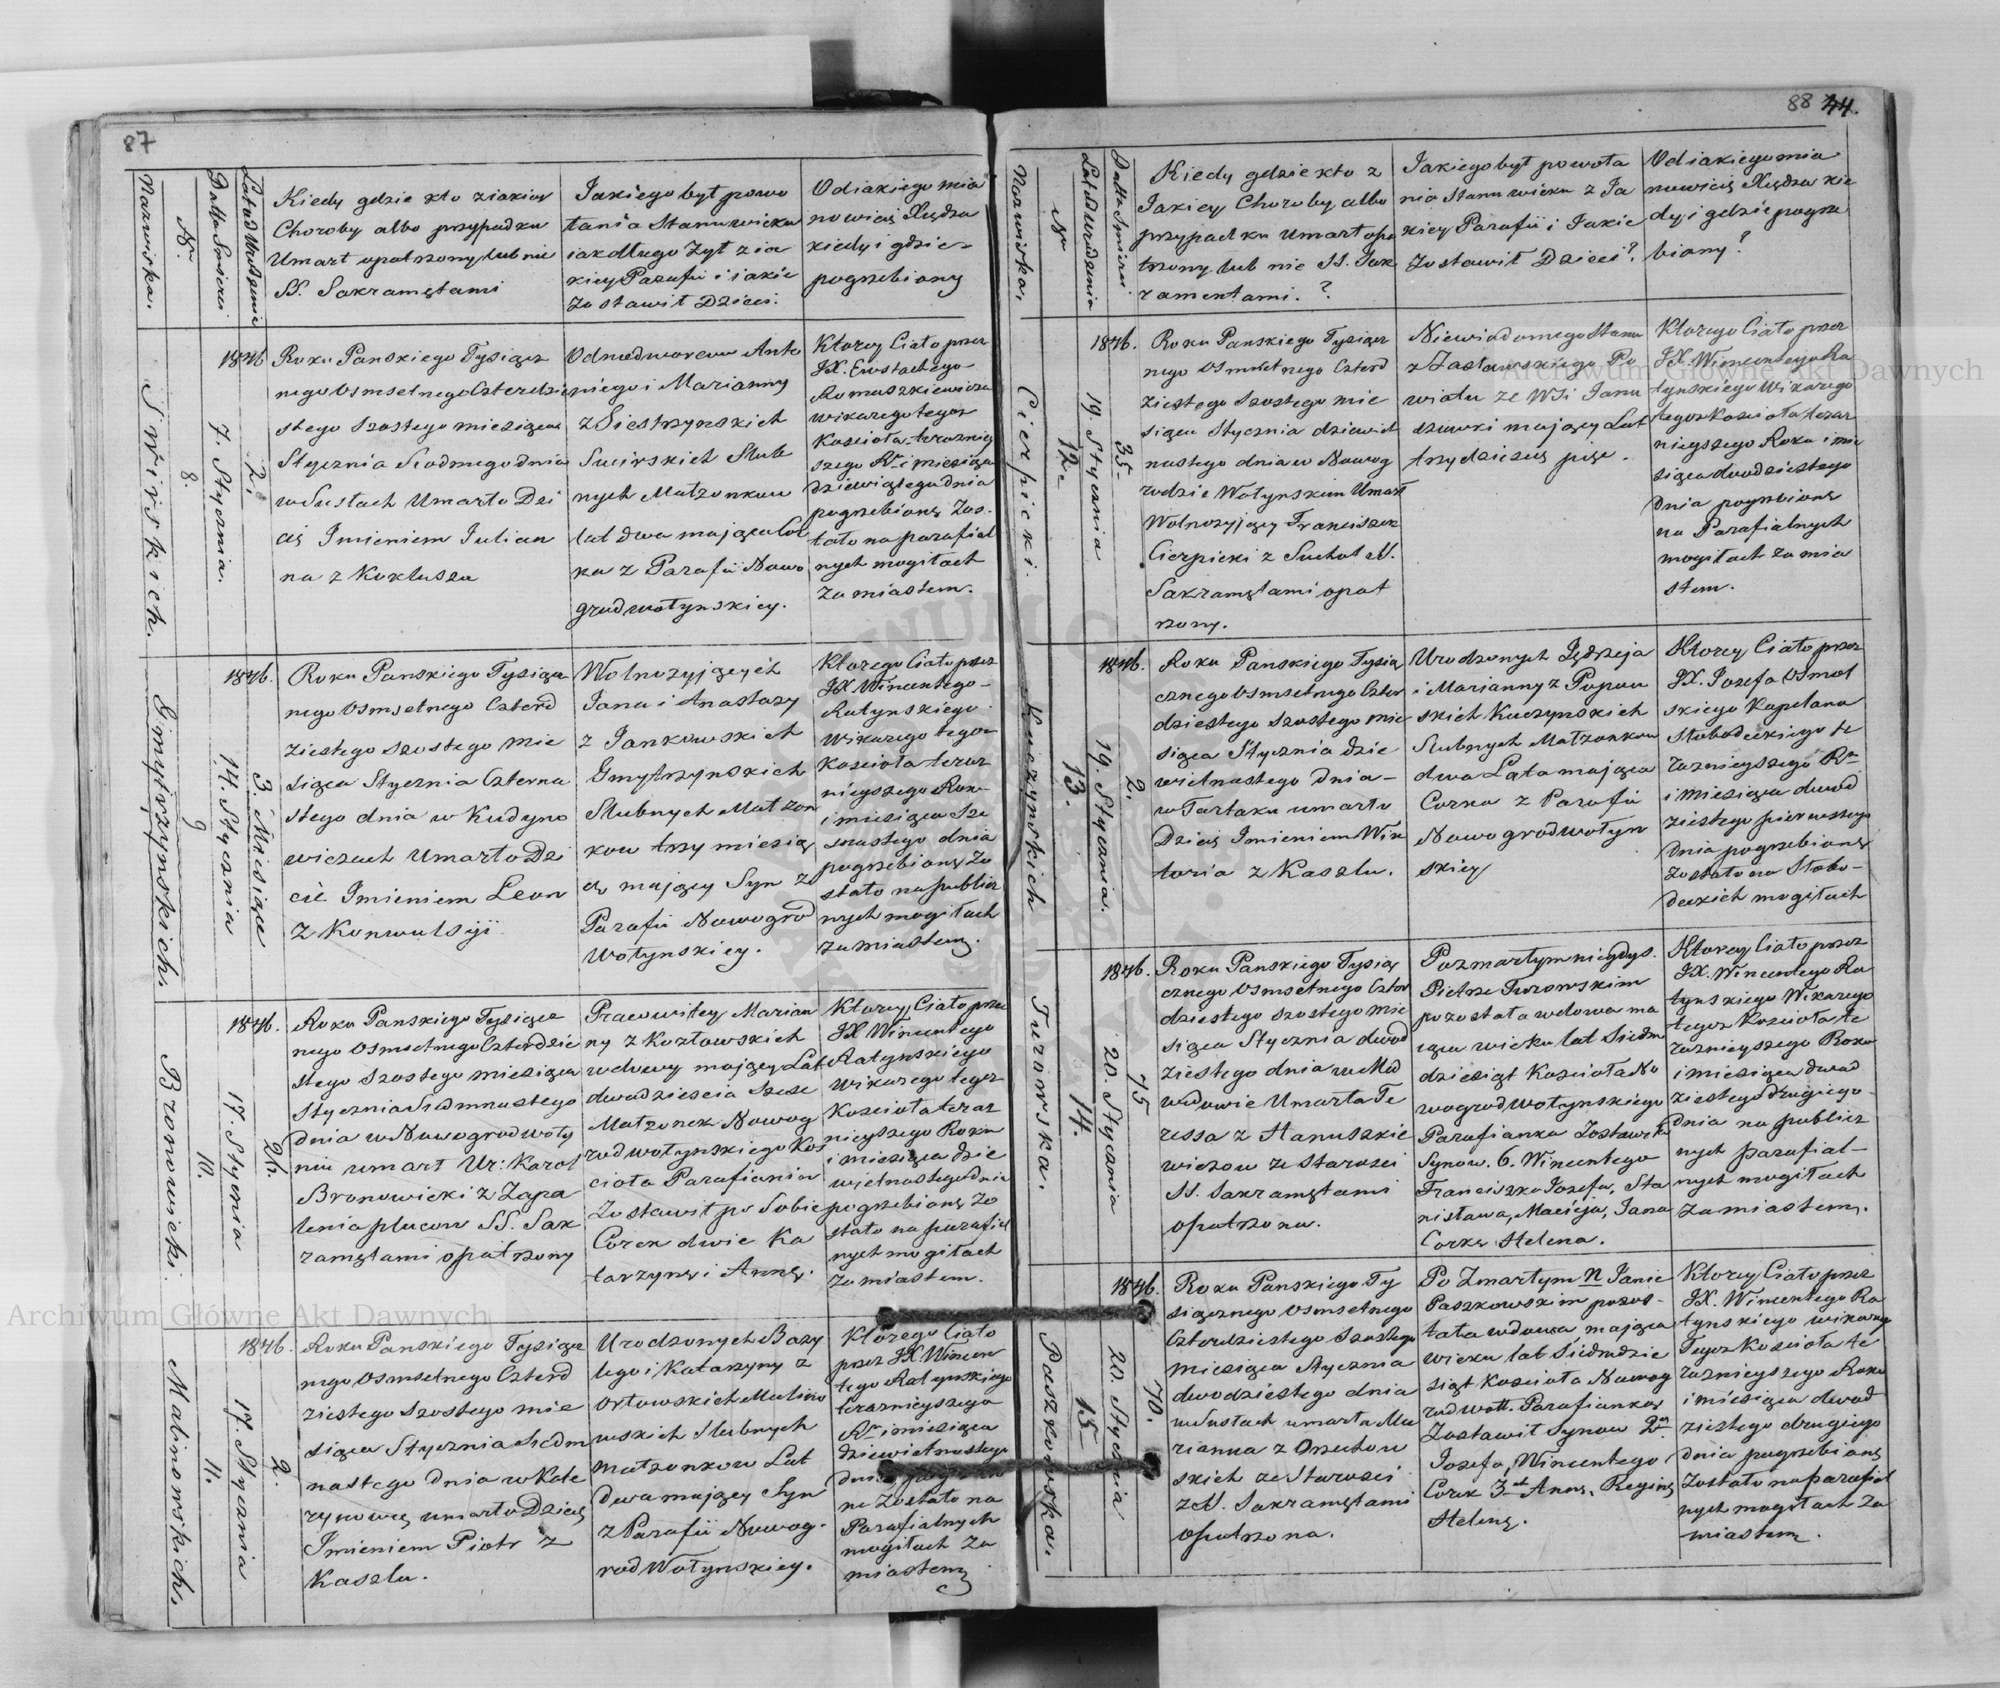 87
Nazwiska.
Nr.
Datta Smierci
Lat od Urodzenia
Kiedy gdzie kto z iakiey
Choroby albo przypadku
Umarł opatrzony lub nie
SS. Sakramętami
Jakiego był powo
łania Stanu wieku
iak długo Zył z ia
kiey Parafii i iakie
Zostawił Dzieci.
Od iakiego mia
nowicię Xiędza
kiedy i gdzie
pogrzebiony
Swirskich.
8.
7. Stycznia.
2.
1846
Roku Panskiego Tysiącz
nego Osmsetnego Czterdzie
stego Szostego miesiąca
Stycznia Siodmego dnia
w Sustach Umarło Dzi
cię Imieniem Julian
na z Kokluszu
Odnodworcow Anto
niego i Marianny
z Siestrzynskich
Swirskich Slub
nych Małzonkow
lat dwa maiąca Cor
ka z Parafii Nowo
grudwołynskiey.
Ktorey Ciało przez
JX. Eustachego
Romaszkiewicza
wikarego tegoz
Koscioła terazniey
szego Ru i miesiąca
dziewiątego dnia
pogrzebionę Zos
tało na parafial
nych mogiłach
za miastem.
Gmytrzynskich.
9
14. Stycznia
3. Miesiące
1846.
Roku Panskiego Tysiącz
nego Osmsetnego Czterd
ziestego szostego mie
siąca Stycznia Czterna
stego dnia w Kudyno
wiczach Umarło Dzi
cie Imieniem Leon
z Konwulsyi
Wolnozyjących
Jana i Anastazy
z Jankowskich
Gmytrzynskich
Slubnych Małzon
kow trzy miesią
ce maiący Syn z
Parafii Nowogrod
Wołynskiey.
Ktorego Ciało przez
JX. Wincentego
Ratynskiego
Wikarego tegoz
Koscioła teraz
nieyszego Roku
i miesiąca Sze
snastego dnia
pogrzebionę Zo
stało na publicz
nych mogiłach
za miastem.
Bronowicki
10.
17. Stycnia
26.
1846.
Roku Panskiego Tysiącz
nego Osmsetnego Czterdzie
stego Szostego miesiąca
Stycznia Siedmnastego
dnia w Nowogrodwoły
niu umarł Ur: Karol
Bronowicki z Zapa
lenia plucow SS. Sak
ramętami opatrzony
Prawowitey Marian
ny z Kozłowskich
wdowy maiący Lat
dwadziescia Szesc
Małzonek Nowog
rodwołynskiego Kos
cioła Parafianin
Zostawił po Sobie
Corek dwie Ka
tarzynę i Annę.
Ktorey Ciało przez
JX Wincentego
Ratynskiego
Wikarego tegoz
Koscioła teraz
nieyszego Roku
i miesiąca dzie
więtnastego dnia
pogrzebionę Zo
stało na parafial
nych mogiłach
Za miastem.
Malinowskich.
11.
17. Stycznia
2.
1846.
Roku Panskiego Tysiącz
nego Osmsetnego Czterd
ziestego Szostego mie
siąca Stycznia Siedm
nastego dnia w Kate
rynowce umarło Dziecię
Imieniem Piotr z
Kaszlu.
Urodzonych Bazy
lego i Katarzyny z
Orłowskich Malino
wskich Slubnych
małzonkow Lat
dwa maiący Syn
z Parafii Nowog
rod Wołynskiey.
Ktorego Ciało
przez JX. Wincen
tego Ratynskiego
teraznieyszego
Ru i miesiąca
dziewietnastego
dnia pogrzebio
ne Zostało na
Parafialnych
mogiłach Za
miastem
88 44.
Nazwiska.
Nr
Lat od Urodzenia
Datta Smierci
Kiedy gdzie kto z
Jakiey Choroby albo
przypadku Umarł opa
trzony lub nie SS. Sak
ramentami.?
Jakiego był powoła
nia Stanu wieku z Ja
kiey Parafii i Jakie
Zostawił Dzieci?
Od iakiego mia
nowicię Xiędza kie
dy i gdzie pogrze
biony?
Cierpicki.
12.
19 Stycznia
35
1846.
Roku Panskiego Tysiącz
nego Osmsetnego Czterd
ziestego Szostego mie
siąca Stycznia dziewięt
nastego dnia w Nowog
rodzie Wołynskim Umarł
Wolnozyjący Franciszek
Cierpicki z Suchot SS.
Sakramętami opat
rzony.
Niewiadomego Stanu
z Zasławskiego Po
wiatu ze WSi Janu
szowki maiący Lat
trzydziesci pięc.
Ktorego Ciało przez
JX. Wincentego Ra
tynskiego Wikarego
tegoz Koscioła teraz
nieyszego Roku i mie
siąca dwodziestego
dnia pogrzebionę
na Parafialnych
mogiłach za mia
stem.
Kuczynskich
13.
19. Stycznia.
2.
1846.
Roku Panskiego Tysią
cznego Osmsetnego Czter
dziestego szostego mie
siąca Stycznia dzie
wietnastego dnia
w Tartaku umarło
Dziecię Imieniem Wik
toria z Kaszlu.
Urodzonych Jędrzeja
i Marianny z Popow
skich Kuczynskich
Slubnych Małzonkow
dwa Lata maiąca
Corka z Parafii
Nowogrodwołyn
skiey
Ktorey Ciało przez
JX. Jozefa Osmol
skiego Kapelana
Słobodeckiego te
raznieyszego Ru
i miesiąca dwod
ziestego pierwszego
dnia pogrzebionę
Zostało na Słobo
deckich mogiłach
Turowska.
14.
20. Stycznia
75
1846.
Roku Panskiego Tysią
cznego Osmsetnego Czter
dziestego szostego mie
siąca Stycznia dwod
ziestego dnia w Med
wedowie Umarła Te
ressa z Hanuszkie
wiczow ze Starosci
SS. Sakramętami
opatrzona.
Po zmarłym niegdys
Pietrze Turowskim
pozostała wdowa ma
iąca wieku lat Siedm
dziesiąt Koscioła No
wogrodwołynskiego
Parafianka Zostawiła
Synow. 6. Wincentego
Franciszka Jozefa, Sta
nisława, Macieja, Jana
Corkę Helena.
Ktorey Ciało przez
JX. Wincentego Ra
tynskiego Wikarego
tegoz Koscioła te
raznieyszego Roku
i miesiąca dwad
ziestego drugiego
dnia na publicz
nych parafial
nych mogiłach
Za miastem.
Paszkowska.
15
20. Stycznia
70.
1846.
Roku Panskiego Ty
siącznego Osmsetnego
Czterdziestego Szostego
miesiąca Stycznia
dwodziestego dnia
w Sustach umarła Ma
rianna z Orzechow
skich ze Starosci
z SS. Sakramętami
opatrzona.
Po Zmarłym N Janie
Paszkowskim pozos
tała wdowa, maiąca
wieku lat Siedmdzie
siąt Koscioła Nowog
rodwoł. Parafianka
Zostawił Synow 2ch
Jozefa, Wincentego
Corek 3ch Annę, Reginę
Helenę.
Ktorey Ciało przez
JX. Wincentego Ra
tynskiego wikarego
Tegoz Koscioła te
raznieyszego Roku
i miesiąca dwod
ziestego drugiego
dnia pogrzebionę
Zostało na parafial
nych mogiłach Za
miastem.
Archiwum Główne Akt Dawnych
Archiwum Główne Akt Dawnych